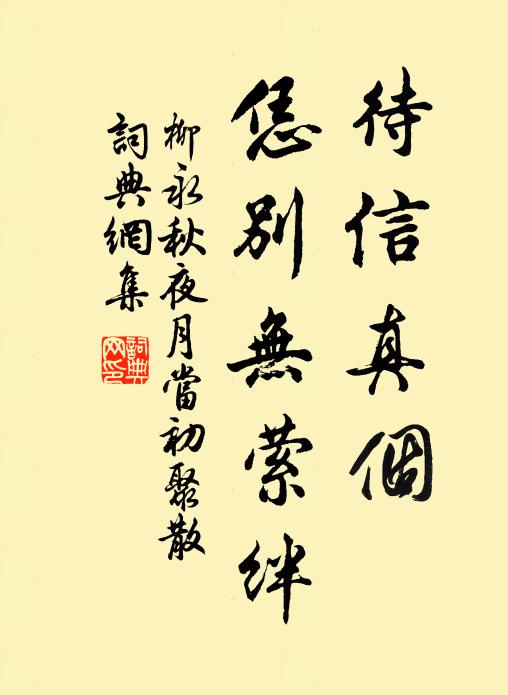 待信真個
恁別無縈絆
柳永秋夜月當初聚散
詞典網集
詞典
网印